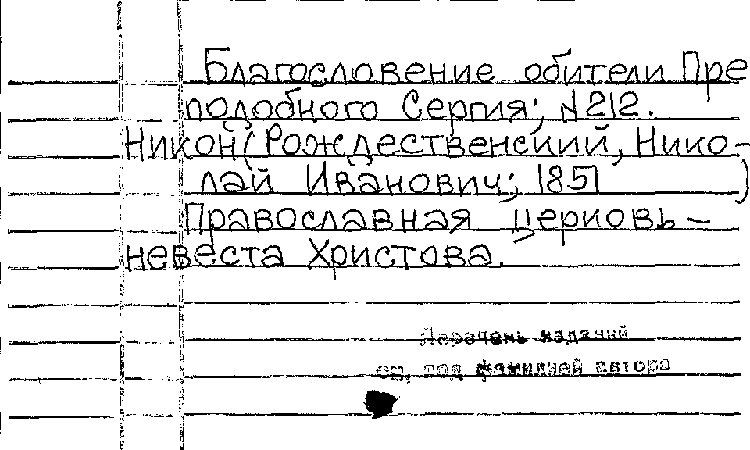 Благословение обители Пре
подобного Сергия; N212.
Никон (Рождественский, Нико-
лай Иванович; 1851 )
Православная церковь –
невеста Христова.
Перечень изданий
см. под фамилией автора